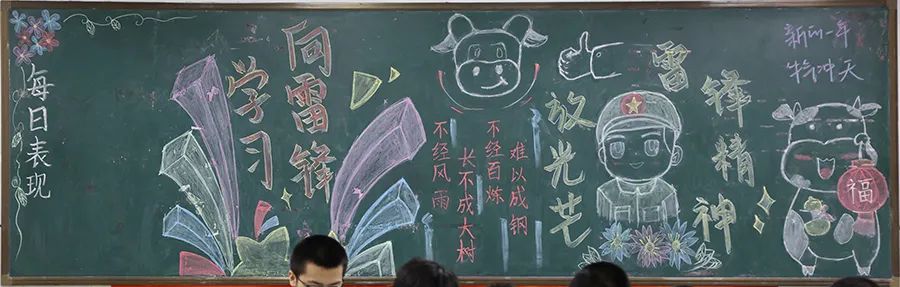 每日表现
向雷锋
学习
不经风雨
长不成大树
不经百炼
难以成钢
雷锋精神
放光芒
新的一年
牛气冲天
福